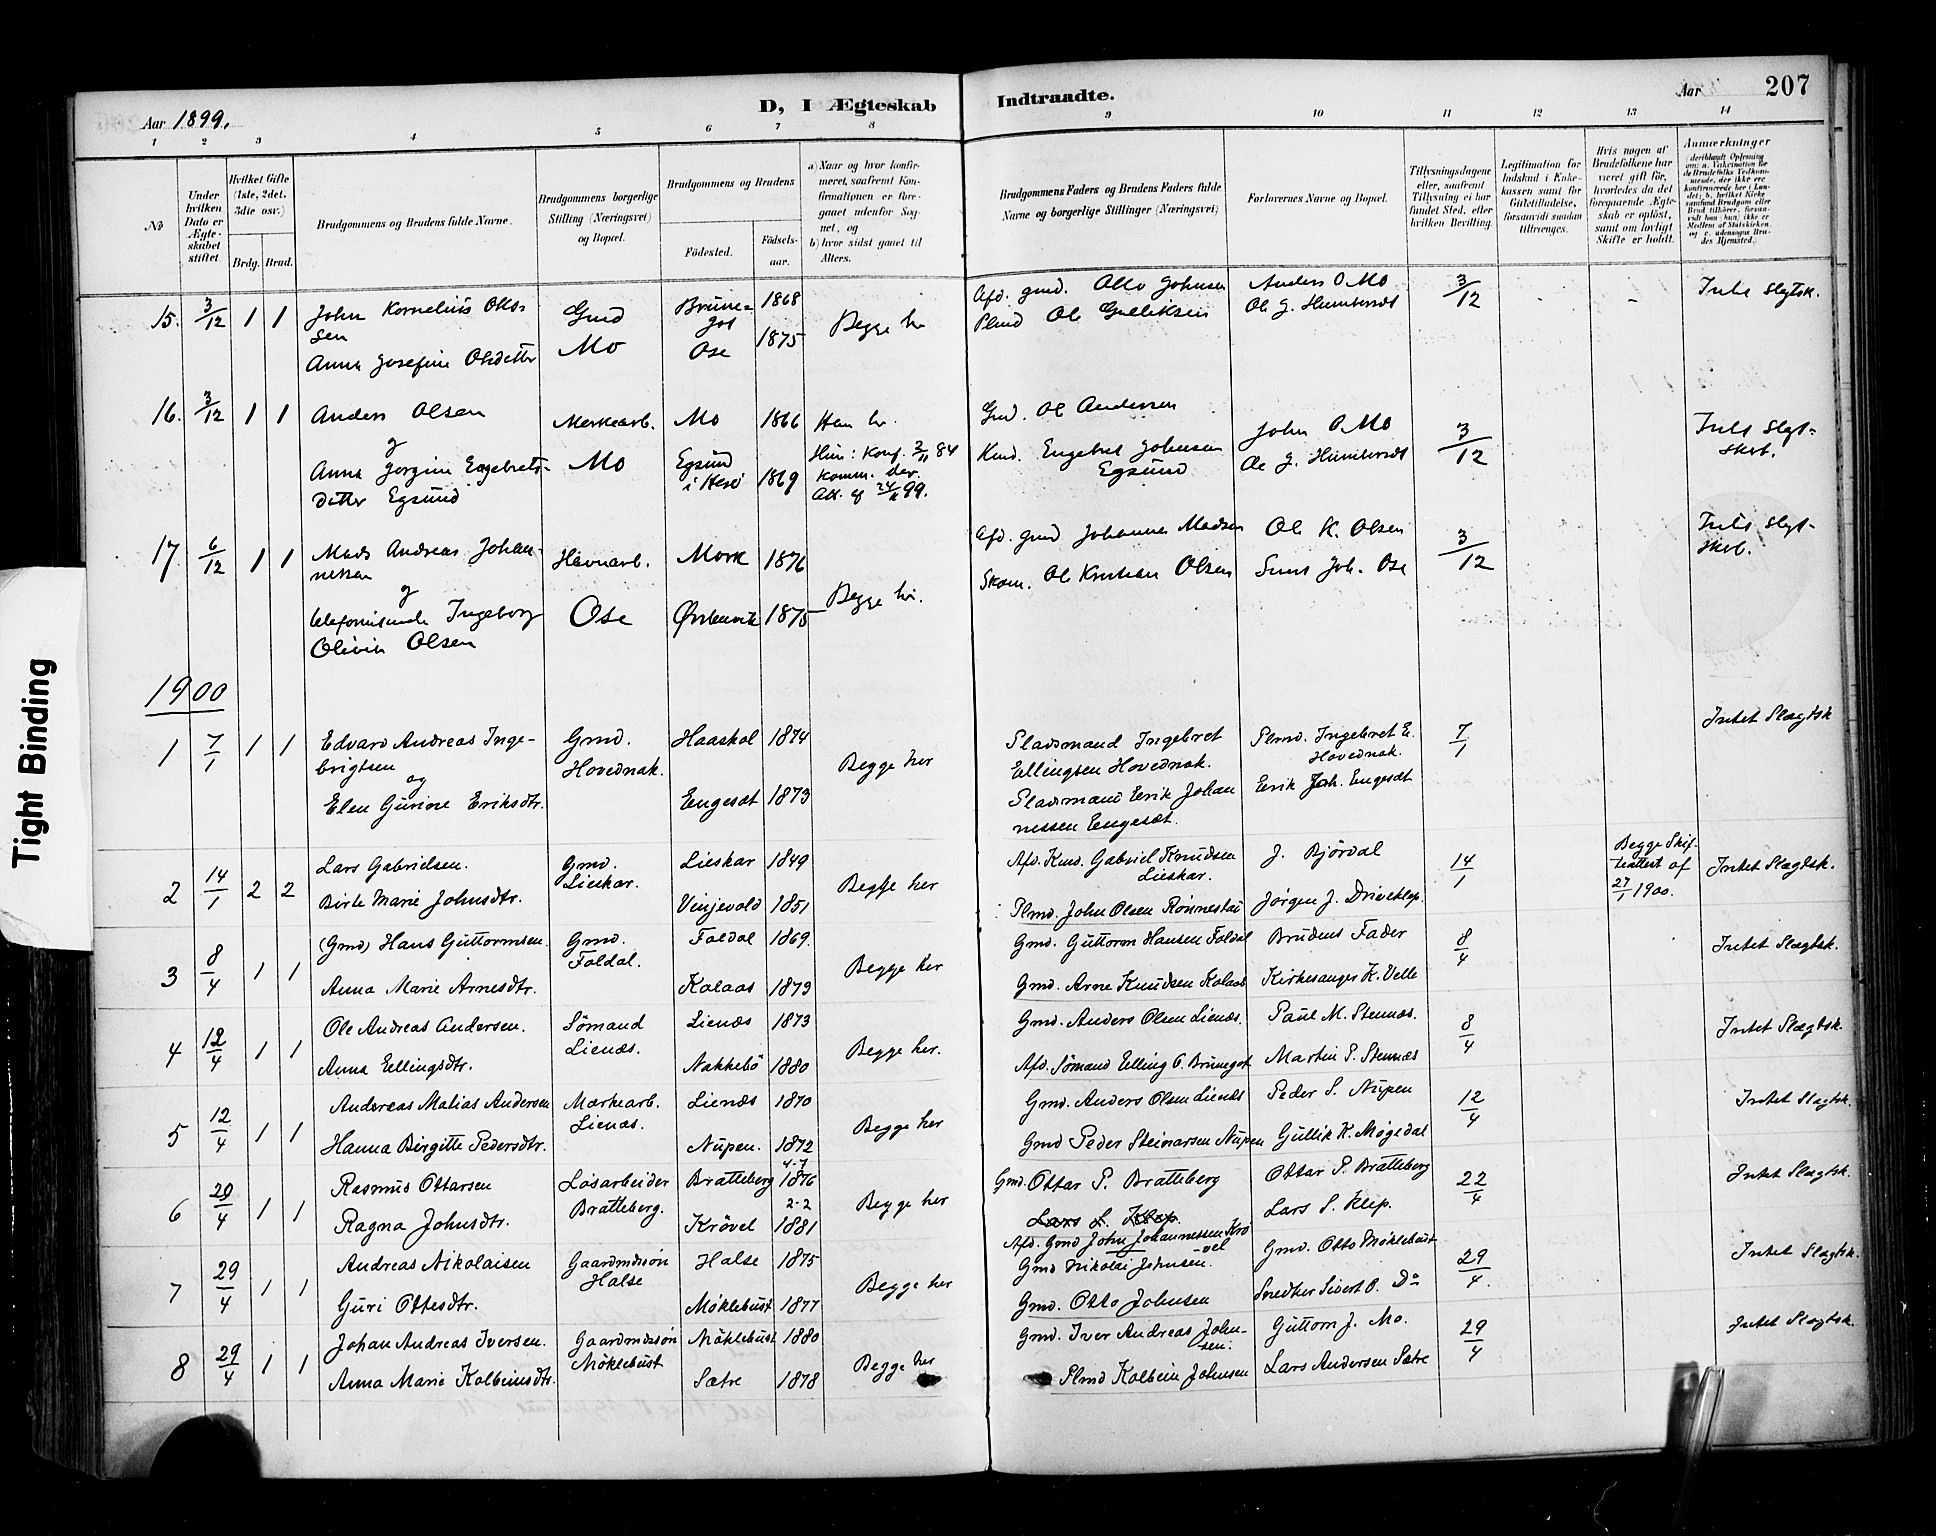 Tight Binding
Aar 1899.
D, I Ægteskab Indtraadte.
Aar
207
1 2 3 4 5 6 7 8 9 10 11 12 13 14
No
Under hvilken Dato er Ægteskabet stiftet.
Hvilket Gifte (1ste, 2det, 3die osv.)
Brdg. Brud.
Brudgommens og Brudens fulde Navne.
Brudgommens borgerlige Stilling (Næringsvei) og Bopæl.
Brudgommens og Brudens
Fødested.
Födsels-aar.
a) Naar og hvor konfirmeret, saafremt Konfirmationen er foregaaet udenfor Sognet, og
b) hvor sidst gaaet til Alters.
Brudgommens Faders og Brudens Faders fulde Navne og borgerlige Stillinger (Næringsvei)
Forlovernes Navne og Bopæl.
Tillysningsdagene eller, saafremt Tillysning ei har fundet Sted, efter hvilken Bevilling.
Legitimation for Indskud i Enkekassen samt for Giftetilladelse, forsaavidt saadan tiltrænges.
Hvis nogen af Brudefolkene har været gift før, hvorledes da det foregaaende Ægteskab er opløst, samt om lovligt Skifte er holdt.
Anmerkninger
15. 3/12 1 1 John Kornelius Ottosen Gmd Brunegot 1868 Begge her Afd. gmd. Otto Johnsen Anders O Mo 3/12 - - Intet Slegtsk.
Anna Josefine Olsdatter Mo Ose 1875 Plmd Ole Gulliksen Ole J. Humberset
16. 3/12 1 1 Anders Olsen Merkearb. Mo 1866 Han her. Gmd. Ole Andersen John O Mo 3/12 Intet Slegtskab.
og
Anna Jorgine Engebretsdatter Egsund Mo Egsund i Herö 1869 Hun: Konf. 2/11 84 Komm. der. Att. af 24/11 99. Kmd. Engebret Johnsen Egsund Ole J. Humberset
17. 6/12 1 1 Mads Andreas Johannessen Havnarb. Mork 1876 Begge her. Afd. gmd Johannes Madsen Ole K. Olsen 3/12 Intet Slegtskab.
og
telefonistinde Ingeborg Olivia Olsen Ose Ørstenvik 1875 Skom. Ole Kristian Olsen Sivert Joh. Ose
1900
1 7/1 1 1 Edvard Andreas Ingebrigtsen Gmd. Hovednak. Haaskol 1874 Begge her Pladsmand Ingebret Ellingsen Hovednak. Plmd. Ingebret E. Hovednak. 7/1 Intet Slægtsk
og
Elen Gurine Eriksdtr. Engeset 1873 Pladsmand Erik Johannessen Engeset. Erik Joh. Engeset
2 14/1 2 2 Lars Gabrielsen. Gmd. Lieskar. Lieskar 1849 Begge her Afd. Kmd. Gabriel Knudsen Lieskar. J. Bjørdal 14/1 Begge Skifteattest af 27/1 1900. Intet Slægtsk.
Birte Marie Johnsdtr. Vinjevold 1851 Plmd. John Olsen Rønnestad Jørgen J. Driveklep.
3 8/4 1 1 (Gmd) Hans Guttormsen. Gmd. Foldal. Foldal 1869. Begge her Gmd. Guttorm Hansen Foldal Brudens Fader 8/4 Intet Slægtsk.
Anna Marie Arnesdtr. Kolaas 1873 Gmd. Arne Knudsen Kolaas Kirkesanger K. Velle
4 12/4 1 1 Ole Andreas Andersen. Sömand Lienæs. Lienæs 1873 Begge her. Gmd. Anders Olsen Lienæs. Paul M. Stennæs. 8/4 Intet Slægtsk.
Anna Ellingsdtr. Nakkebö 1880 Afd. Sömand Elling O. Brunegot Martin P. Stennæs
5 12/4 1 1 Andreas Matias Andersen Merkearb. Lienæs. Lienæs 1870 Begge her Gmd. Anders Olsen Lienæs Peder S. Nupen 12/4 Intet Slægtsk.
Hanna Birgitte Pedersdtr. Nupen. 1872 Gmd Peder Steinarsen Nupen Gullik K. Møgedal
6 29/4 1 1 Rasmus Ottarsen Løsarbeider Bratteberg. Bratteberg 4-7 1876 Begge her Gmd. Ottar P. Bratteberg Ottar P. Bratteberg 22/4 Intet Slægtsk.
Ragna Johnsdtr. Krövel 2-2 1881 Lars L. Klep. Afd. Gmd John Johannessen Krövel Lars S. Klep.
7 29/4 1 1 Andreas Nikolaisen Gaardmdssön Halse Halse 1875 Begge her Gmd Nikolai Johnsen. Gmd. Otto Møklebust 29/4. Intet Slægtsk.
Guri Ottesdtr. Møklebust 1877 Gmd. Otto Johnsen Snedker Sivert O. Do
8 29/4 1 1 Johan Andreas Iversen. Gaardmdssön Möklebust Möklebust 1880 Begge her Gmd. Iver Andreas Johnsen. Guttorm J. Mo. 29/4 Intet Slægtsk.
Anna Marie Kolbeinsdtr. Sætre 1878 Plmd Kolbein Johnsen Lars Andersen Sætre